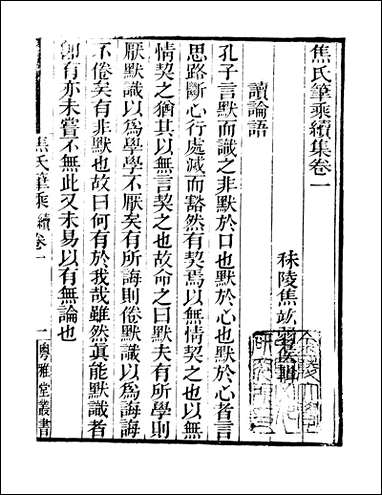 焦氏筆乘續集卷一
秣陵焦竑弱侯輯
讀論語
孔子言默而識之非默於口也默於心也默於心者言
思路斷心行處滅而豁然有契焉以無情契之也以無
情契之猶其以無言契之也故命之曰默夫有所學則
厭默識以為學學不厭矣有所誨則倦默識以為誨誨
不倦矣有非默也故曰何有於我哉雖然真能默識者
卽有亦未嘗不無此又未易以有無論也
焦氏筆乘續卷一
一
粵雅堂叢書